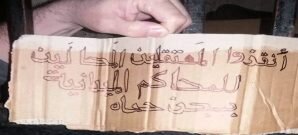 أنقذوا المعتقلين المحالين
للمحاكم الميدانية
بسجن حماه